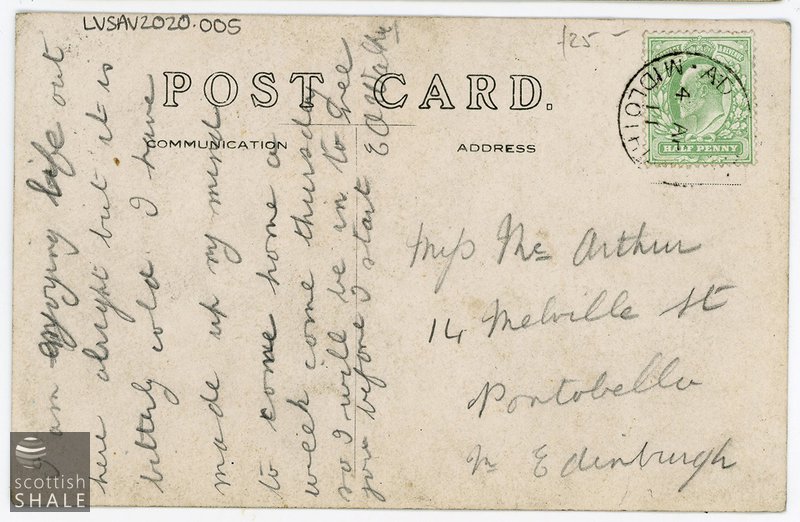 LVSAV2020.005
/25-
POST CARD.
COMMUNICATION
ADDRESS
HALF PENNY
MIDLOTH
4 AP 11
I am enjoying life out
here alright but it is
bitterly cold I have
made up my mind
to come home a
week come thursday
so I will be in to see
you before I start
Miss Mc Arthur
14 Melville St
Portobello
Nr Edinburgh
scottish
SHALE